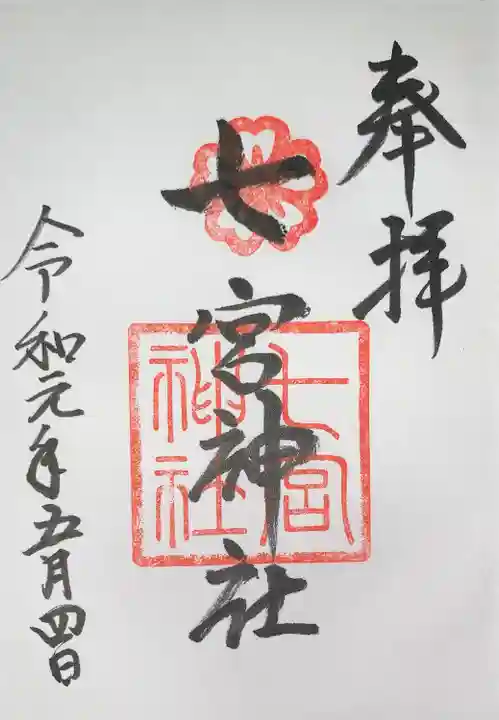 奉拝
七宮神社
七宮
神社
令和元年五月四日